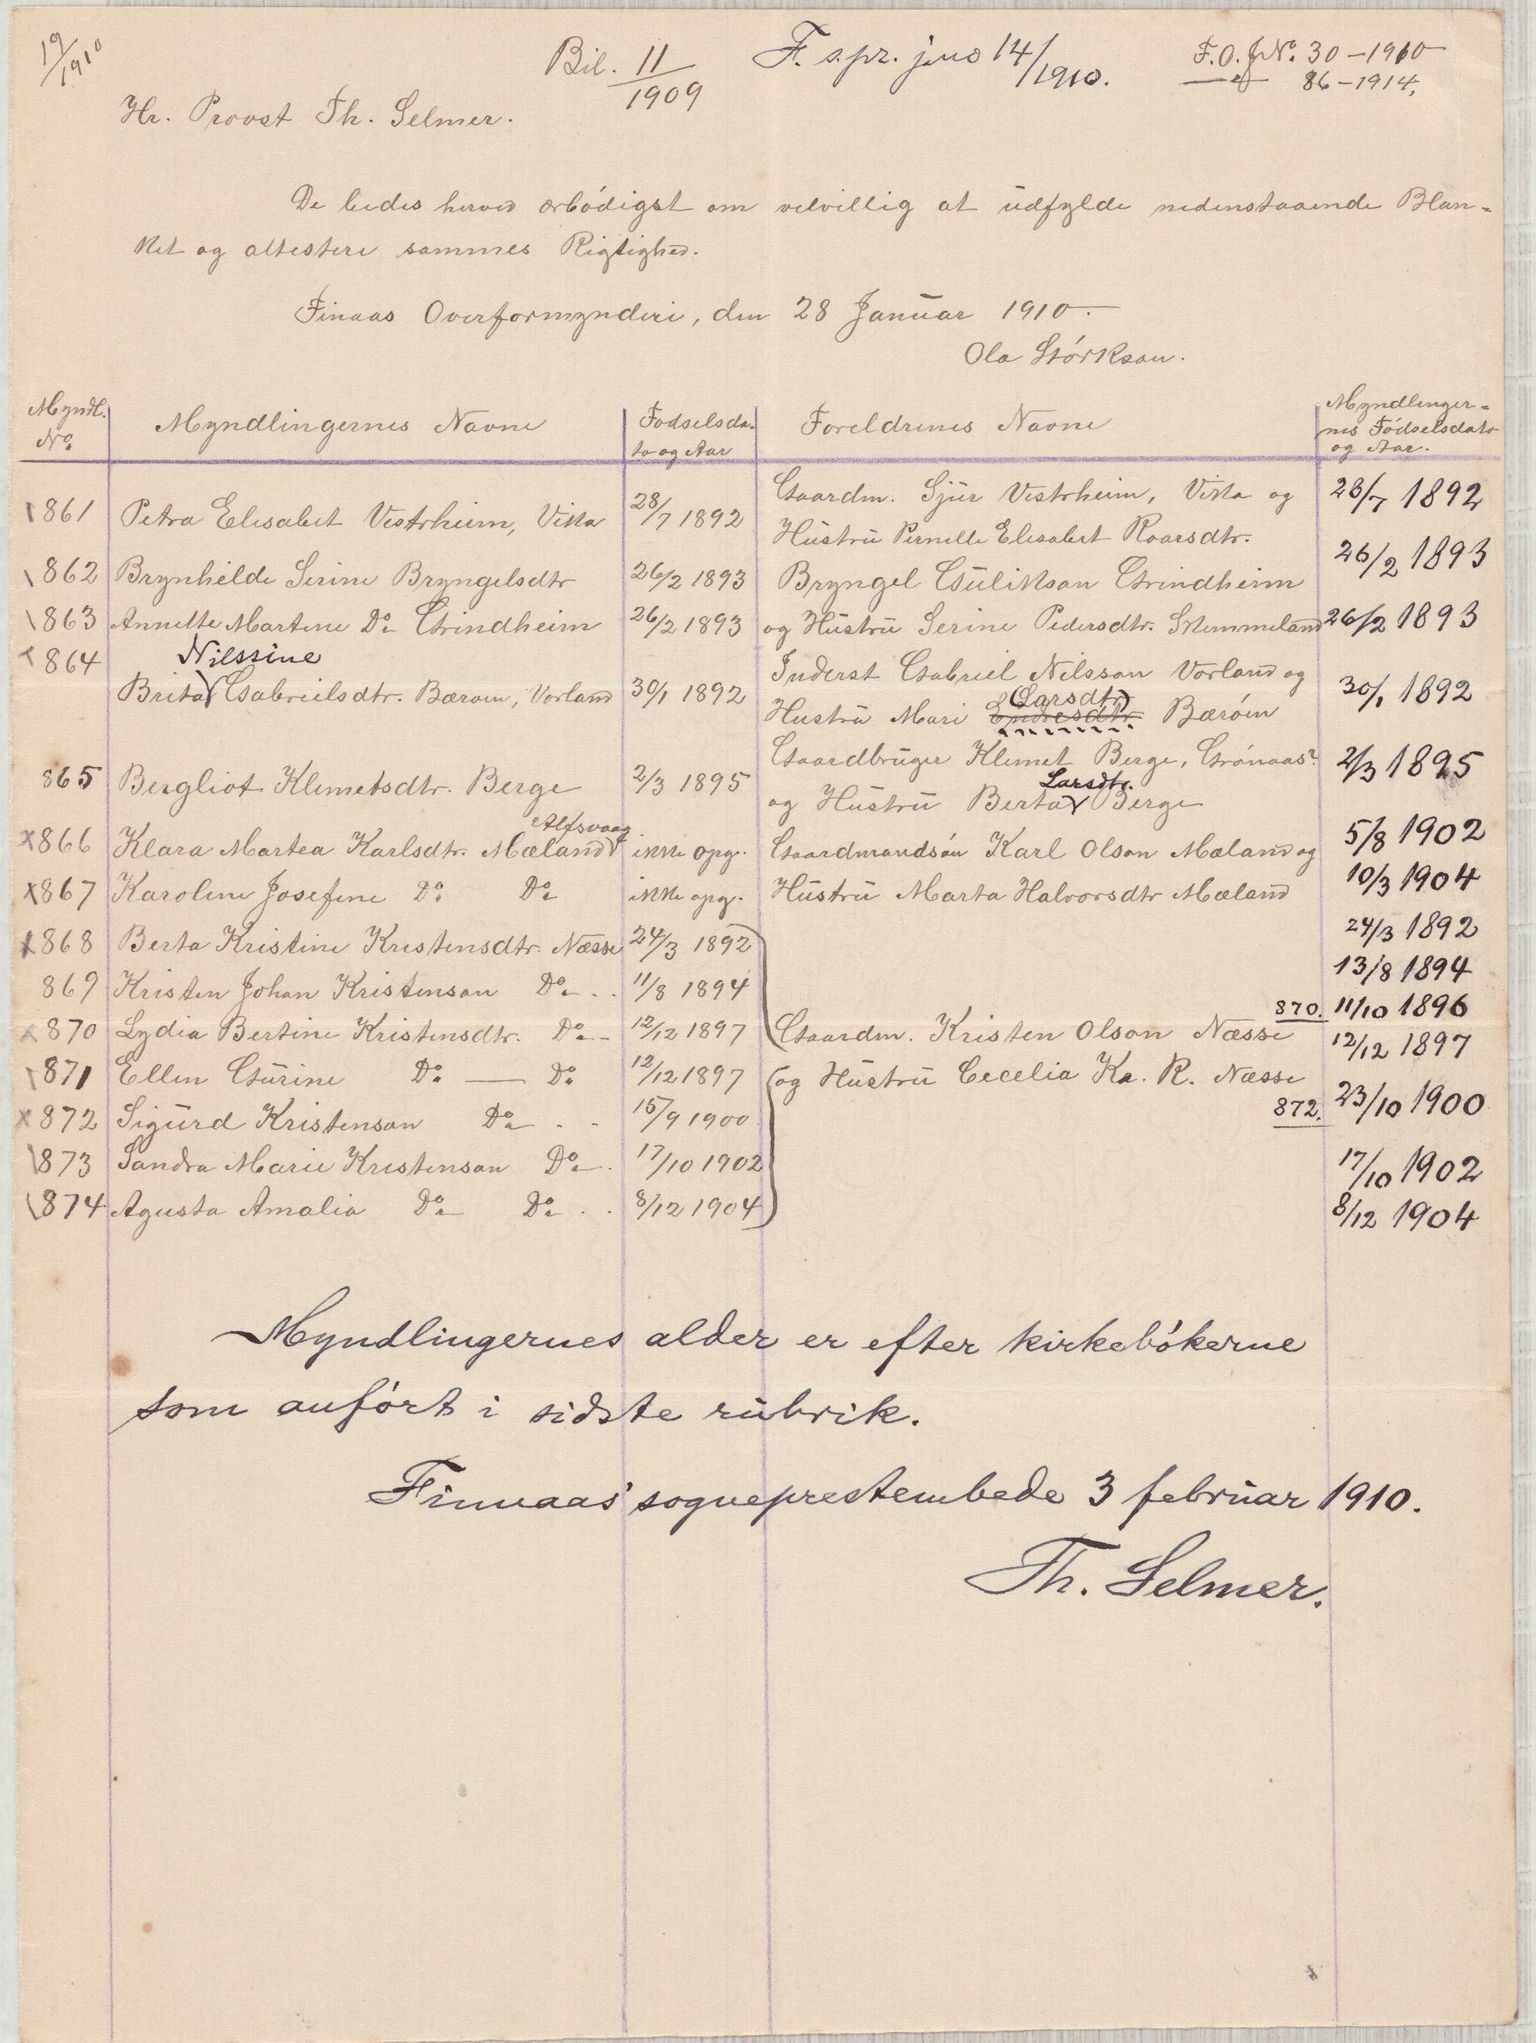 19/1910
Bil. 11/1909
F. s.pr. j.no 14/1910.
F.O.J.No. 30 - 1910
— " — 86 - 1914.
Hr. Provst Th. Selmer.
De bedes herved ærbödigst om velvillig at udfylde nedenstaaende Blan=
ket og attestere sammes Rigtighed.
Finaas Overformynderi, den 28 Januar 1910.
Ola Störkson.
Myndl. No. | Myndlingernes Navne | Fødselsda- to og Aar | Foreldrenes Navne | Myndlinger= nes Födselsdato og Aar.
861 Petra Elisabet Vestrheim, Vika 28/7 1892 Gaardm. Sjur Vestrheim, Vika og 28/7 1892
Hustru Pernelle Elisabet Roarsdtr.
862 Brynhilde Serine Bryngelsdtr 26/2 1893 Bryngel Gulikson Grindheim 26/2 1893
863 Annette Martine Do Grindheim 26/2 1893 og Hustru Serine Pedersdtr. Skimmeland 26/2 1893
864 Nilssine Inderst Gabriel Nilsson Vorland og
Brita Gabrielsdtr. Bæröm, Vorland 30/1 1892 Hustru Mari Endresdtr. Larsdtr. Bæröm 30/1 1892
Gaardbruger Klemet Berge, Grönaas?
865 Bergliot Klemetsdtr. Berge 2/3 1895 og Hustru Berta Larsdtr. Berge 2/3 1895
866 Klara Martea Karlsdtr. Mæland Alfsvaag ikke opg. Gaardmandsön Karl Olson Mæland og 5/8 1902
867 Karoline Josefine Do Do ikke opg. Hustru Marta Halvorsdtr Mæland 10/3 1904
868 Berta Kristine Kristensdtr. Næsse 24/3 1892 24/3 1892
869 Kristen Johan Kristenson Do 11/8 1894 13/8 1894
870. 11/10 1896
870 Lydia Bertine Kristensdtr. Do 12/12 1897 Gaardm. Kristen Olson Næsse 12/12 1897
871 Ellen Gurine Do — Do 12/12 1897 og Hustru Cecelia Ka. R. Næsse
872 Sigurd Kristenson Do 15/9 1900 872. 23/10 1900
873 Sandra Marie Kristenson Do 17/10 1902 17/10 1902
874 Agusta Amalia Do Do 8/12 1904 8/12 1904
Myndlingernes alder er efter kirkebökerne
som anfört i sidste rubrik.
Finnaas' sogneprestembede 3 februar 1910.
Th. Selmer.